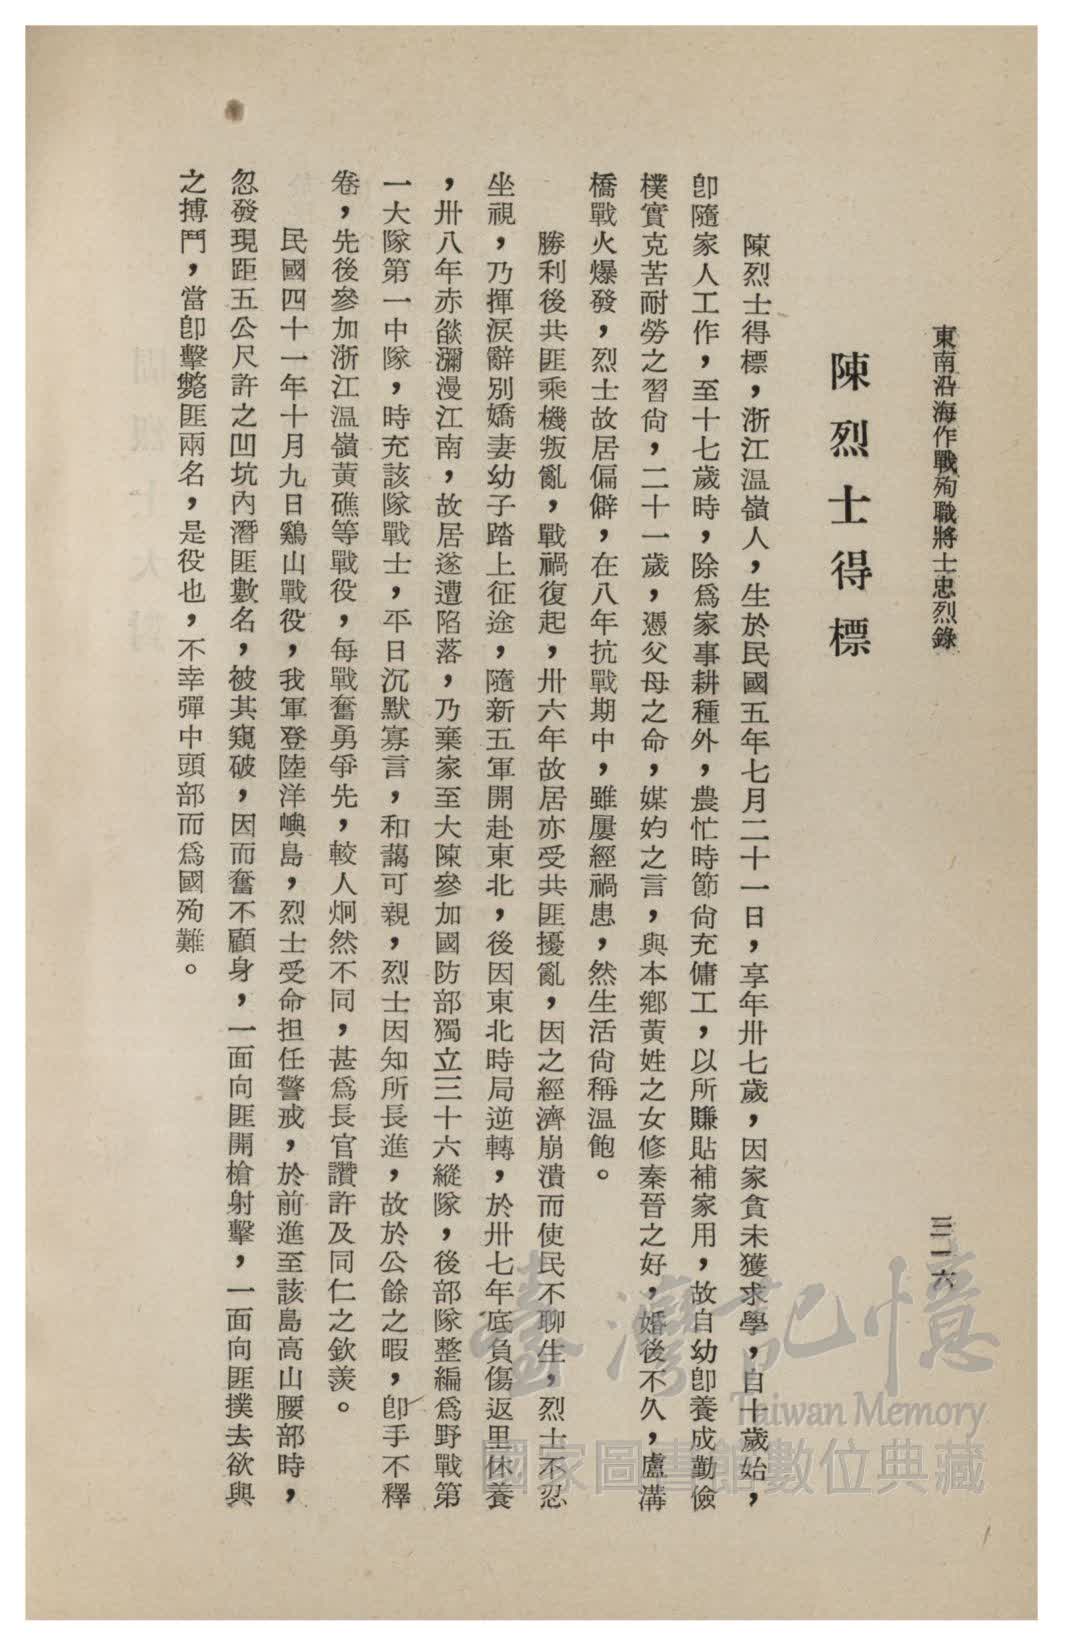 東南沿海作戰殉職將士忠烈錄
三一六
陳烈士得標
陳烈士得標，浙江温嶺人，生於民國五年七月二十一日，享年卅七歲，因家貧未獲求學，自十歲始，
卽隨家人工作，至十七歲時，除爲家事耕種外，農忙時節尙充傭工，以所賺貼補家用，故自幼卽養成勤儉
樸實克苦耐勞之習尙，二十一歲，憑父母之命，媒妁之言，與本鄉黃姓之女修秦晉之好，婚後不久，盧溝
橋戰火爆發，烈士故居偏僻，在八年抗戰期中，雖屢經禍患，然生活尙稱温飽。
勝利後共匪乘機叛亂，戰禍復起，卅六年故居亦受共匪擾亂，因之經濟崩潰而使民不聊生，烈士不忍
坐視，乃揮淚辭別嬌妻幼子踏上征途，隨新五軍開赴東北，後因東北時局逆轉，於卅七年底負傷返里休養
，卅八年赤燄瀰漫江南，故居遂遭陷落，乃棄家至大陳參加國防部獨立三十六縱隊，後部隊整編爲野戰第
一大隊第一中隊，時充該隊戰士，平日沉默寡言，和藹可親，烈士因知所長進，故於公餘之暇，卽手不釋
卷，先後參加浙江温嶺黃礁等戰役，每戰奮勇爭先，較人炯然不同，甚爲長官讚許及同仁之欽羨。
民國四十一年十月九日鷄山戰役，我軍登陸洋嶼島，烈士受命担任警戒，於前進至該島高山腰部時，
忽發現距五公尺許之凹坑內潛匪數名，被其窺破，因而奮不顧身，一面向匪開槍射擊，一面向匪撲去欲與
之搏鬥，當卽擊斃匪兩名，是役也，不幸彈中頭部而爲國殉難。
臺灣記憶
Taiwan Memory
國家圖書館數位典藏